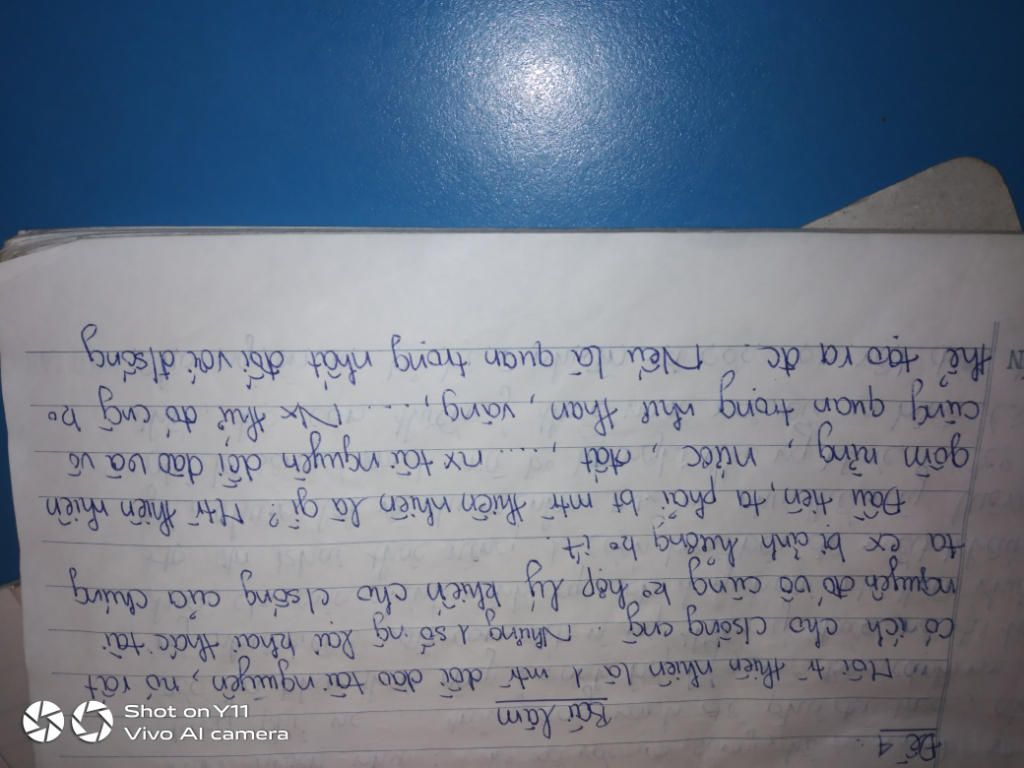 Đề 1
Bài làm
Môi tr thiên nhiên là 1 mtr dồi dào tài nguyên, nó rất
có ích cho c/sống cng. Nhưng 1 số ng lại khai thác tài
nguyên đó vô cùng ko hợp lý khiến cho c/sống của chúng
ta cx bị ảnh hưởng ko ít.
Đầu tiên, ta phải bt mtr thiên nhiên là gì? Mtr thiên nhiên
gồm rừng, nước, đất, .... nx tài nguyên dồi dào và vô
cùng quan trọng như than, vàng, ... Nx thứ đó cng ko
thể tạo ra đc. Nếu là quan trọng nhất đối với đ/sống
Shot on Y11
Vivo AI camera